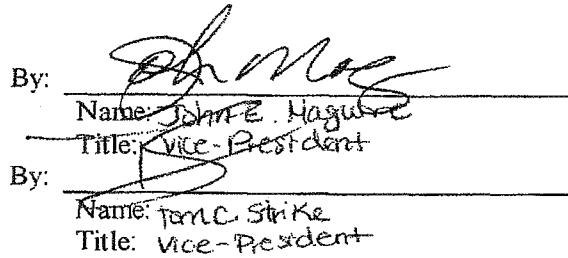 By:
Name: John E. Maguire
Title: Vice-President
By:
Name: Tom C. Strike
Title: Vice-President